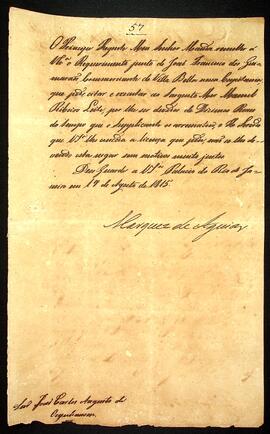 57
O Principe Regente Meu Senhor Manda remetter a
V.S.ª o Requerimento junto de José Francisco dos
Commerciante de Villa Bella nessa Capitania
que pede citar e executar ao Sargento Mór Manoel
Ribeiro Leite, por lhe ser devedor de
do tempo que o Supplicante os
que V.S.ª lhe conceda a licença que pede, não se lhe de
vendo esta negar sem motivos muito justos.
Deos Guarde a V.S.ª Palacio do Rio de Ja-
neiro em 17 de Agosto de 1815.
Marquez de Aguiar
Snr. João Carlos Augusto de
Oeynhausen